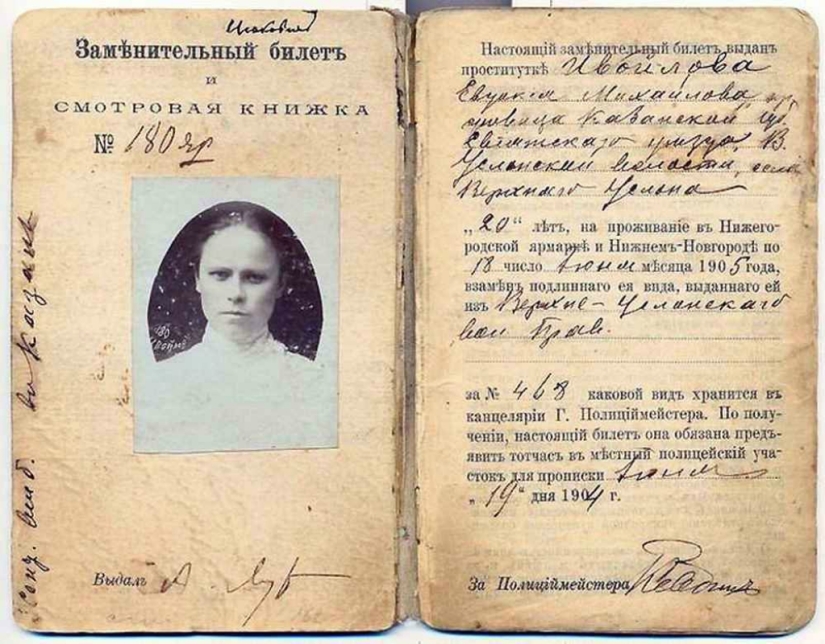 Замѣнительный билетъ
и
СМОТРОВАЯ КНИЖКА
№ 180 яр
въ Казань
Выдалъ
Настоящій замѣнительный билетъ выданъ
проституткѣ Ивойлова
Евдокія Михайлова
Казанской губ.
Свіяжскаго уѣзда, В.
Услонской волости, села
Верхняго Услона
„20“ лѣтъ, на проживаніе въ Нижего-
родской ярмаркѣ и Нижнемъ-Новгородѣ по
18 число іюня мѣсяца 1905 года,
взамѣнъ подлиннаго ея вида, выданнаго ей
изъ Верхне-Услонскаго
вол. Прав.
за № 468 каковой видъ хранится въ
канцеляріи Г. Полиціймейстера. По полу-
ченіи, настоящій билетъ она обязана предъ-
явить тотчасъ въ мѣстный полицейскій уча-
стокъ для прописки іюня
„19“ дня 1904 г.
За Полиціймейстера